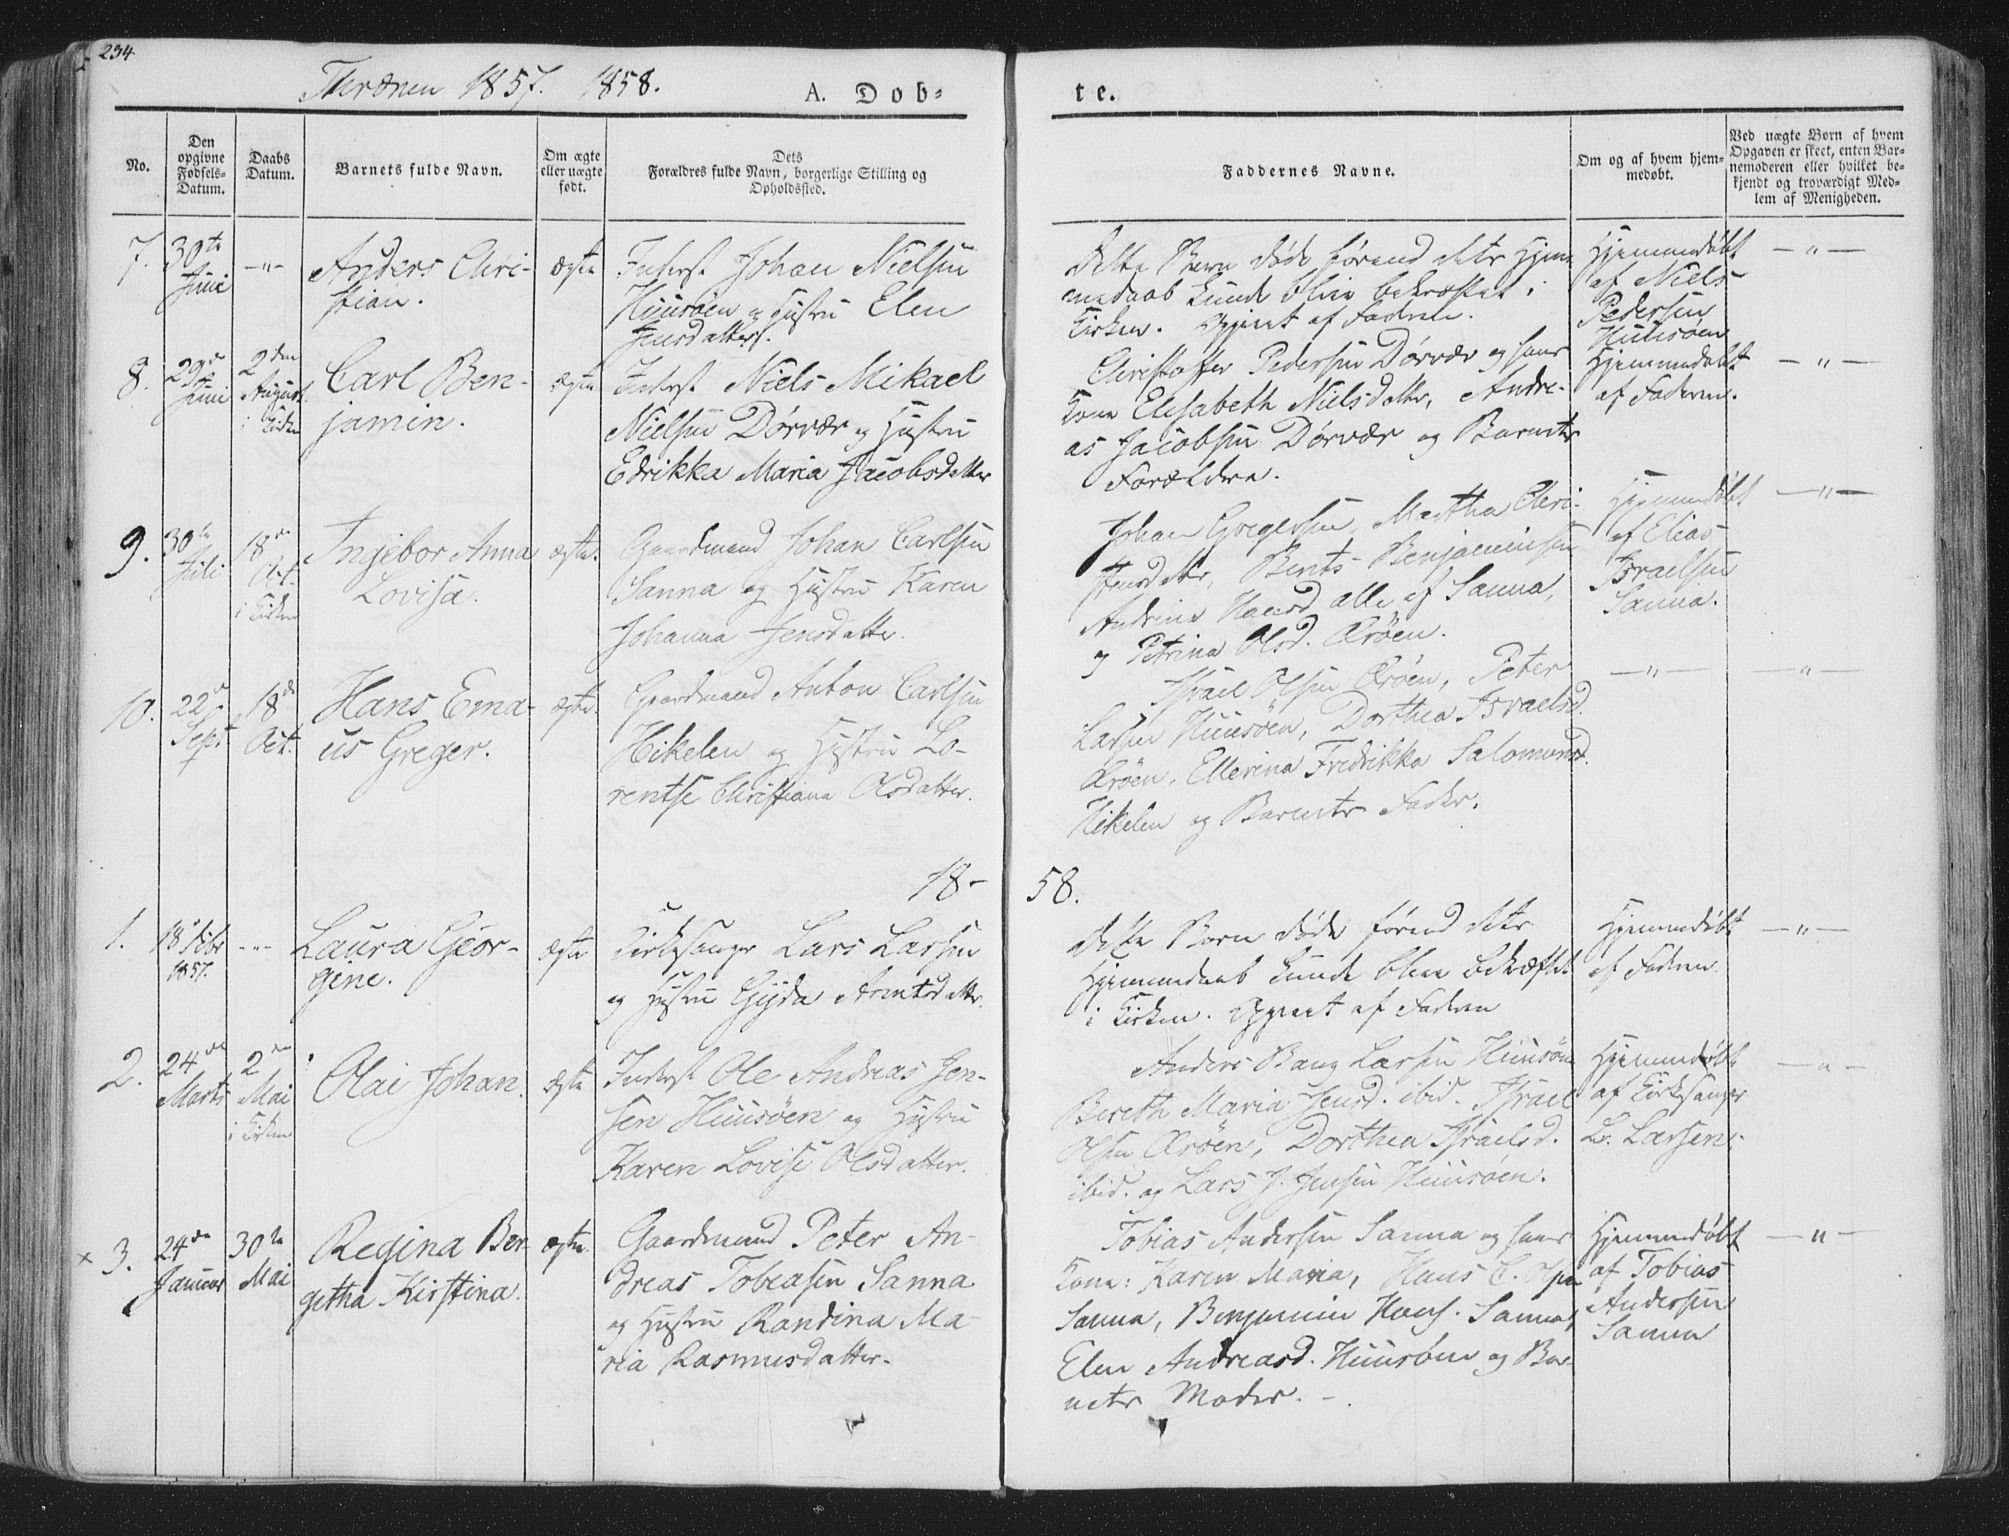 234.
Thrænen 1857. 1858.
A. Døb-
te.
No.
Den opgivne Fødsels-Datum.
Daabs Datum.
Barnets fulde Navn.
Om ægte eller uægte født.
Dets Forældres fulde Navn, borgerlige Stilling og Opholdssted.
Faddernes Navne.
Om og af hvem hjem-medøbt.
Ved uægte Børn af hvem Opgaven er skeet, enten Bar-nemoderen eller hvilket be-kjendt og troværdigt Med-lem af Menigheden.
7. 30te Juni —"— Anders Chri-
stian.
ægte Inderst Johan Nielsen
Huusøen og Hustru Elen
Jensdatter.
Dette Barn døde førend dets Hjem-
medaab kunde blive bekræftet i
Kirken. Opgivet af Faderen.
Hjemmedøbt
af Niels
Pedersen
Huusøen
—"—
8. 29de Juni 2den August i Kirken
Carl Ben-
jamin.
ægte Inderst Niels Mikael
Nielsen Dørvær og Hustru
Edrikka Maria Jacobsdatter
Christoffer Pedersen Dørvær og hans
Kone Elisabeth Nielsdatter, Andre-
as Jacobsen Dørvær og Barnets
Forældre.
Hjemmedøbt
af Faderen.
—"—
9. 30te Juli 18de Oct. i Kirken
Ingebor Anna
Lovisa.
ægte. Gaardmand Johan Carlsen
Sanna og Hustru Karen
Johanna Jensdatter.
Johan Gregersen, Martha Chri-
stensdatter, Bents Benjaminsen
Andrine Hansd. alle af Sanna,
og Petrina Olsd. Ørøen.
Hjemmedøbt
af Elias
Israelsen
Sanna.
—"—
10. 22de Sept. 18de Oct.
Hans Ema-
us Greger.
ægte. Gaardmand Anton Carlsen
Hikelen og Hustru Lo-
rentse Christiana Olsdatter.
Israel Olsen Ørøen, Peter
Larsen Huusøen, Dorthea Israelsd.
Ørøen, Ellerina Fredrikka Salomonsd.
Hikelen og Barnets Fader.
—"—
—"—
18-
58.
1. 18de 1857. —"—
Laura Geor-
gine.
ægte Kirkesanger Lars Larsen
og Hustru Gjida Arntsdatter.
Dette Barn døde førend dets
Hjemmedaab kunde blive bekræftet
i Kirken. Opgivet af Faderen
Hjemmedøbt
af Faderen.
—"—
2. 24de Marts 2den Mai i Kirken
Olai Johan.
ægte Inderst Ole Andreas Jen-
sen Huusøen og Hustru
Karen Lovise Olsdatter.
Anders Bang Larsen Huusøen
Bereth Maria Jensd. ibid. Israel
Olsen Ørøen, Dorthea Israelsd.
ibid. og Lars J. Jensen Huusøen.
Hjemmedøbt
af Kirkesanger
L. Larsen.
—"—
× 3. 24de Januar 30te Mai
Regina Ber-
getha Kirstina.
ægte. Gaardmand Peter An-
dreas Tobiasen Sanna
og Hustru Randina Ma-
ria Rasmusdatter.
Tobias Andersen Sanna og hans
Kone: Karen Maria, Hans C. Olsen
Sanna, Benjamin Hans. Sanna,
Elen Andreasd. Huusøen og Bar-
nets Moder. —.
Hjemmedøbt
af Tobias
Andersen
Sanna
—"—